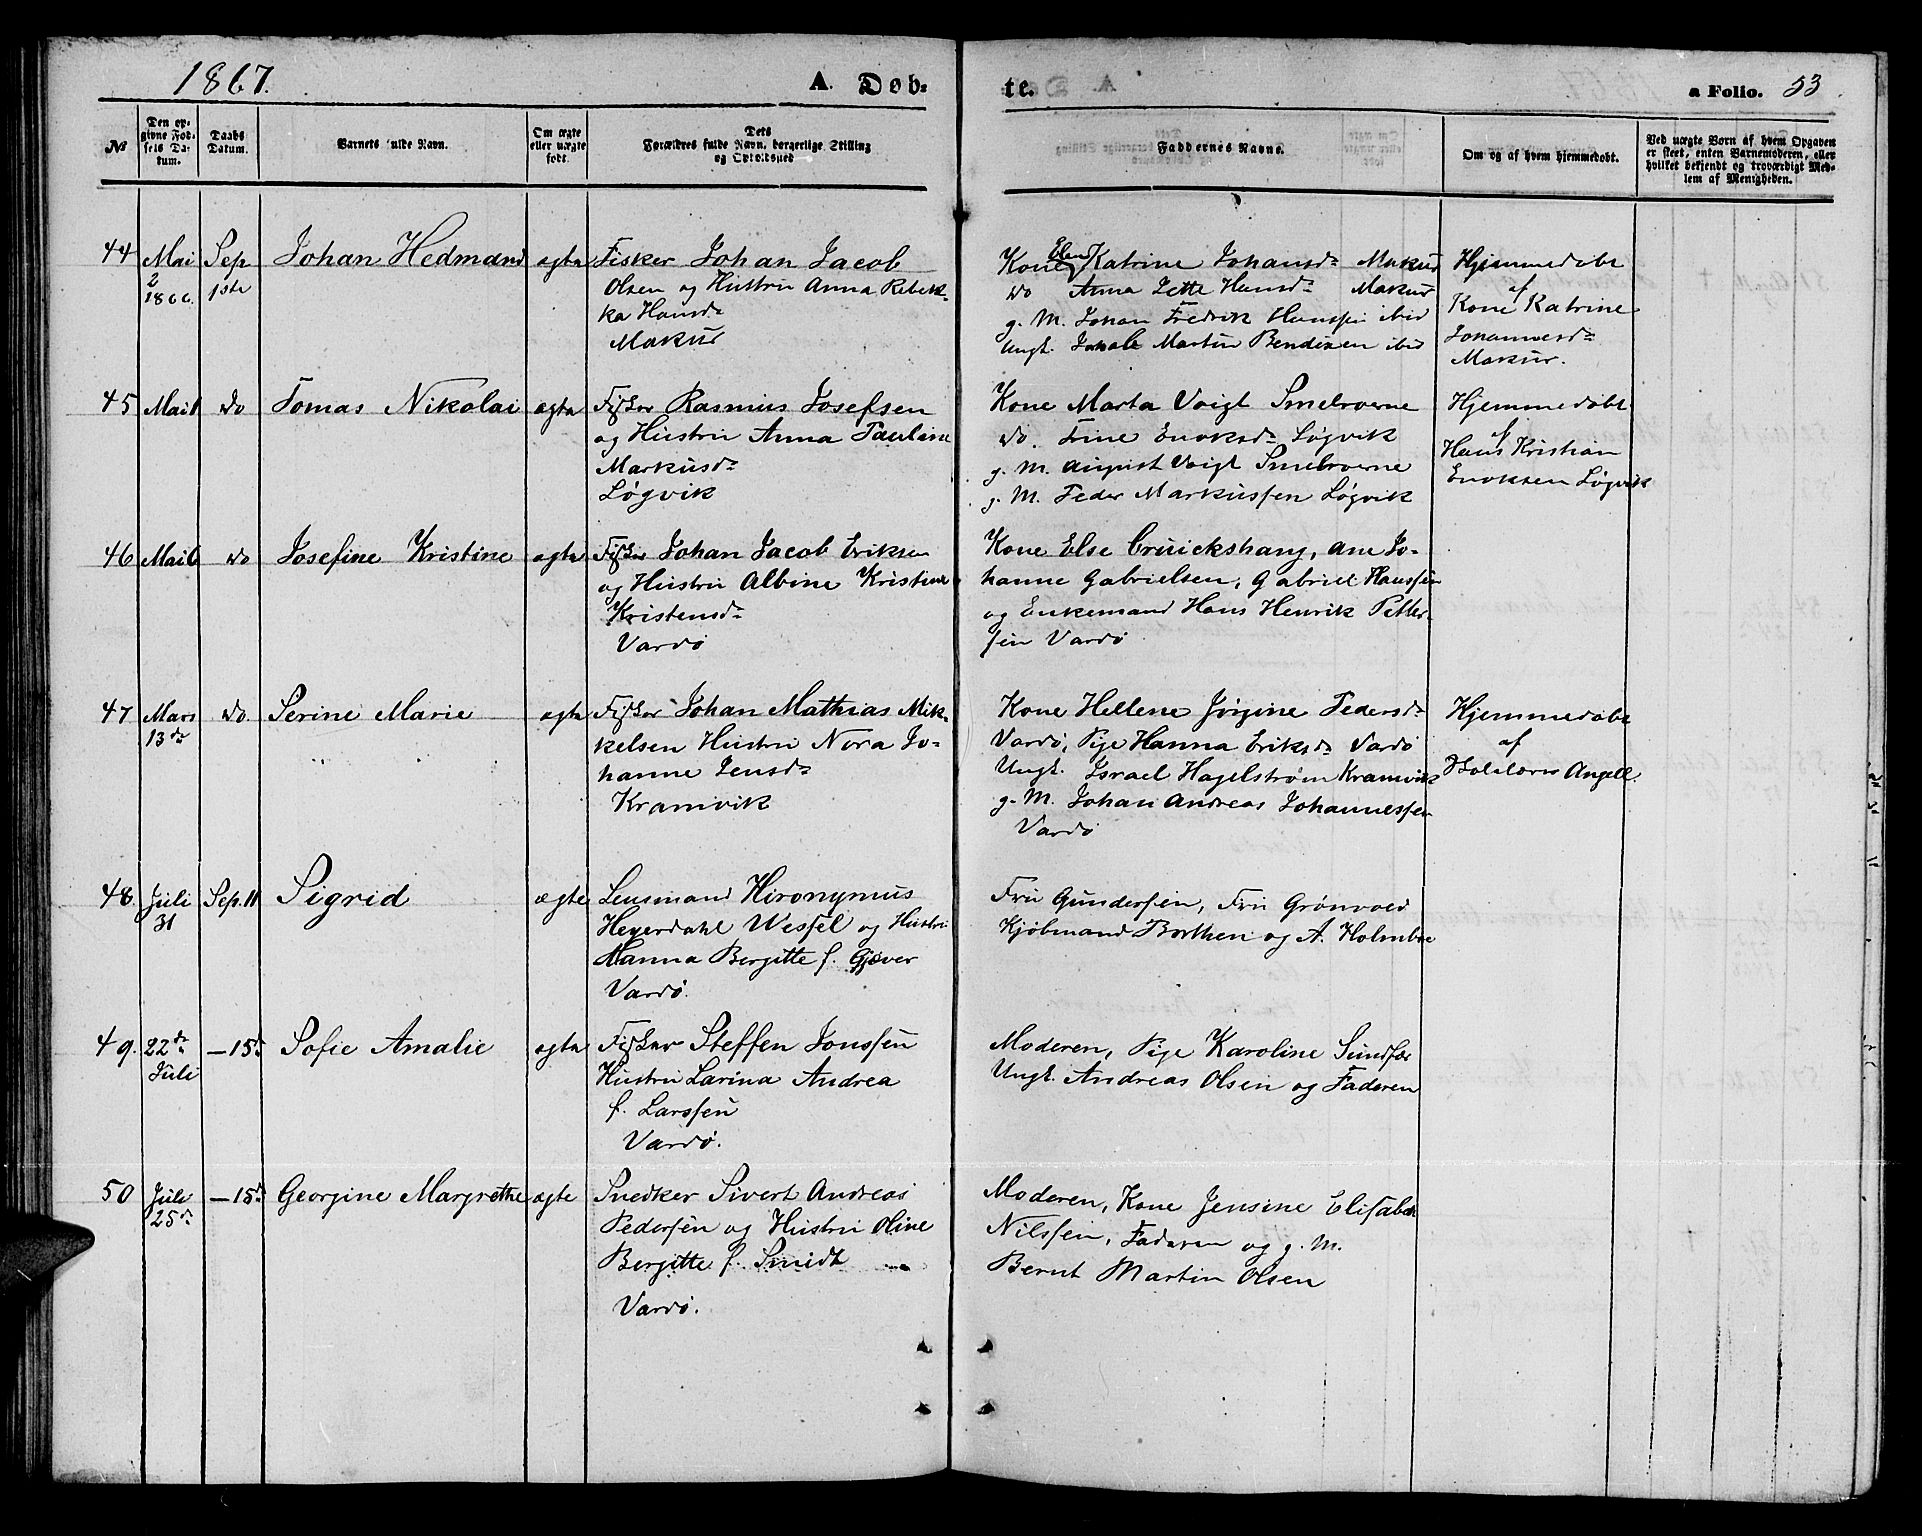 1867. A. Døb- te. a Folio. 53.
No
Den op-
givne Fød-
sels Da-
tum.
Daabs
Datum.
Barnets fulde Navn.
Om ægte
eller uægte
født.
Dets
Forældres fulde Navn, borgerlige Stilling
og Opholdssted
Faddernes Navne.
Om og af hvem hjemmedøbt.
Ved uægte Børn af hvem Opgaven
er skeet, enten Barnemoderen, eller
hvilket bekjendt og troværdigt Med-
lem af Menigheden.
44
Mai
2
1866.
Sep
1ste
Johan Hedmand
ægte
Fisker Johan Jacob
Olsen og Hustru Anna Rebek-
ka Hansd
Makur
Kone Katrine Johansd Makur
do Anna Lette Hansd Makur
g. M. Johan Fredrik Hanssen ibid
Ungk. Martin Bendixen ibid
Hjemmedøbt
af
Kone Katrine
Johannesd
Makur.
45
Mai
do
Tomas Nikolai
ægte
Fisker Rasmus Josefsen
og Hustru Anna Pauline
Markusd
Løgvik
Kone Marta Voigt Smelroerne
do. Trine Enoksd Løgvik
g. M. August Voigt Smelroerne
g. M. Peder Markussen Løgvik
Hjemmedøbt
af
Hans Kristian
Enoksen Løgvik
46
Mai 6
do
Josefine Kristine
ægte
Fisker Johan Jacob Eriksen
og Hustru Albine Kristine
Kristensd
Vardø
Kone Else Cruickshang, Ane Jo-
hanne Gabrielsen, Gabriel Hanssen
og Enkemand Hans Henrik Petter-
sen Vardø
47
Mars
13de
do
Serine Marie
ægte
Fisker Johan Mathias Mik-
kelsen Hustru Nora Jo-
hanne Jensd
Kramvik
Kone Hellene Jørgine Pedersd
Vardø, Pige Hanna Eriksd Vardø
Ungk. Israel Hagelstrøm Kramvik
g. M. Johan Andreas Johannessen
Vardø
Hjemmedøbt
af
Angell.
48.
Juli
31
Sep. 11
Sigrid
ægte
Lensmand Hironymus
Heyerdahl Wessel og Hustru
Hanna Bergitte f. Gjæver
Vardø.
Fru Gundersen, Fru Grønvold
Kjøbmand Borthen og A. Holmboe
49.
22de
Juli
—15de
Sofie Amalie
ægte
Fisker Steffen Jonssen
Hustru Larina Andrea
f. Larssen
Vardø.
Moderen, Pige Karoline Sundfær
Ungk. Andreas Olsen og Faderen
50
Juli
25de
—15de
Georgine Margrethe
ægte
Snedker Sivert Andreas
Pedersen og Hustru Oline
Bergitte f. Smidt
Vardø.
Moderen, Kone Jensine Elisabeth
Nilssen, Faderen og g. M.
Bernt Martin Olsen